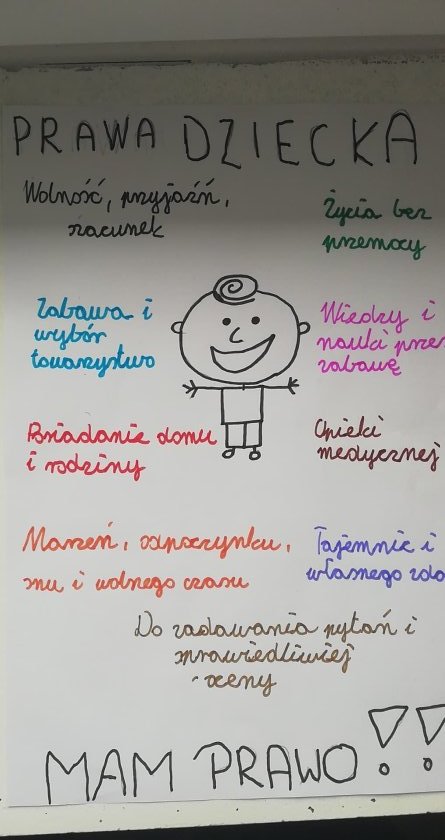 PRAWA DZIECKA
Wolność, przyjaźń,
szacunek
Życia bez
przemocy
Zabawa i
wybór
towarzystwo
Wiedzy i
nauki prze
zabawę
Posiadanie domu
i rodziny
Opieki
medycznej
Marzeń, odpoczynku,
snu i wolnego czasu
Tajemnic i
własnego zda
Do zadawania pytań i
sprawiedliwej
oceny
MAM PRAWO!!